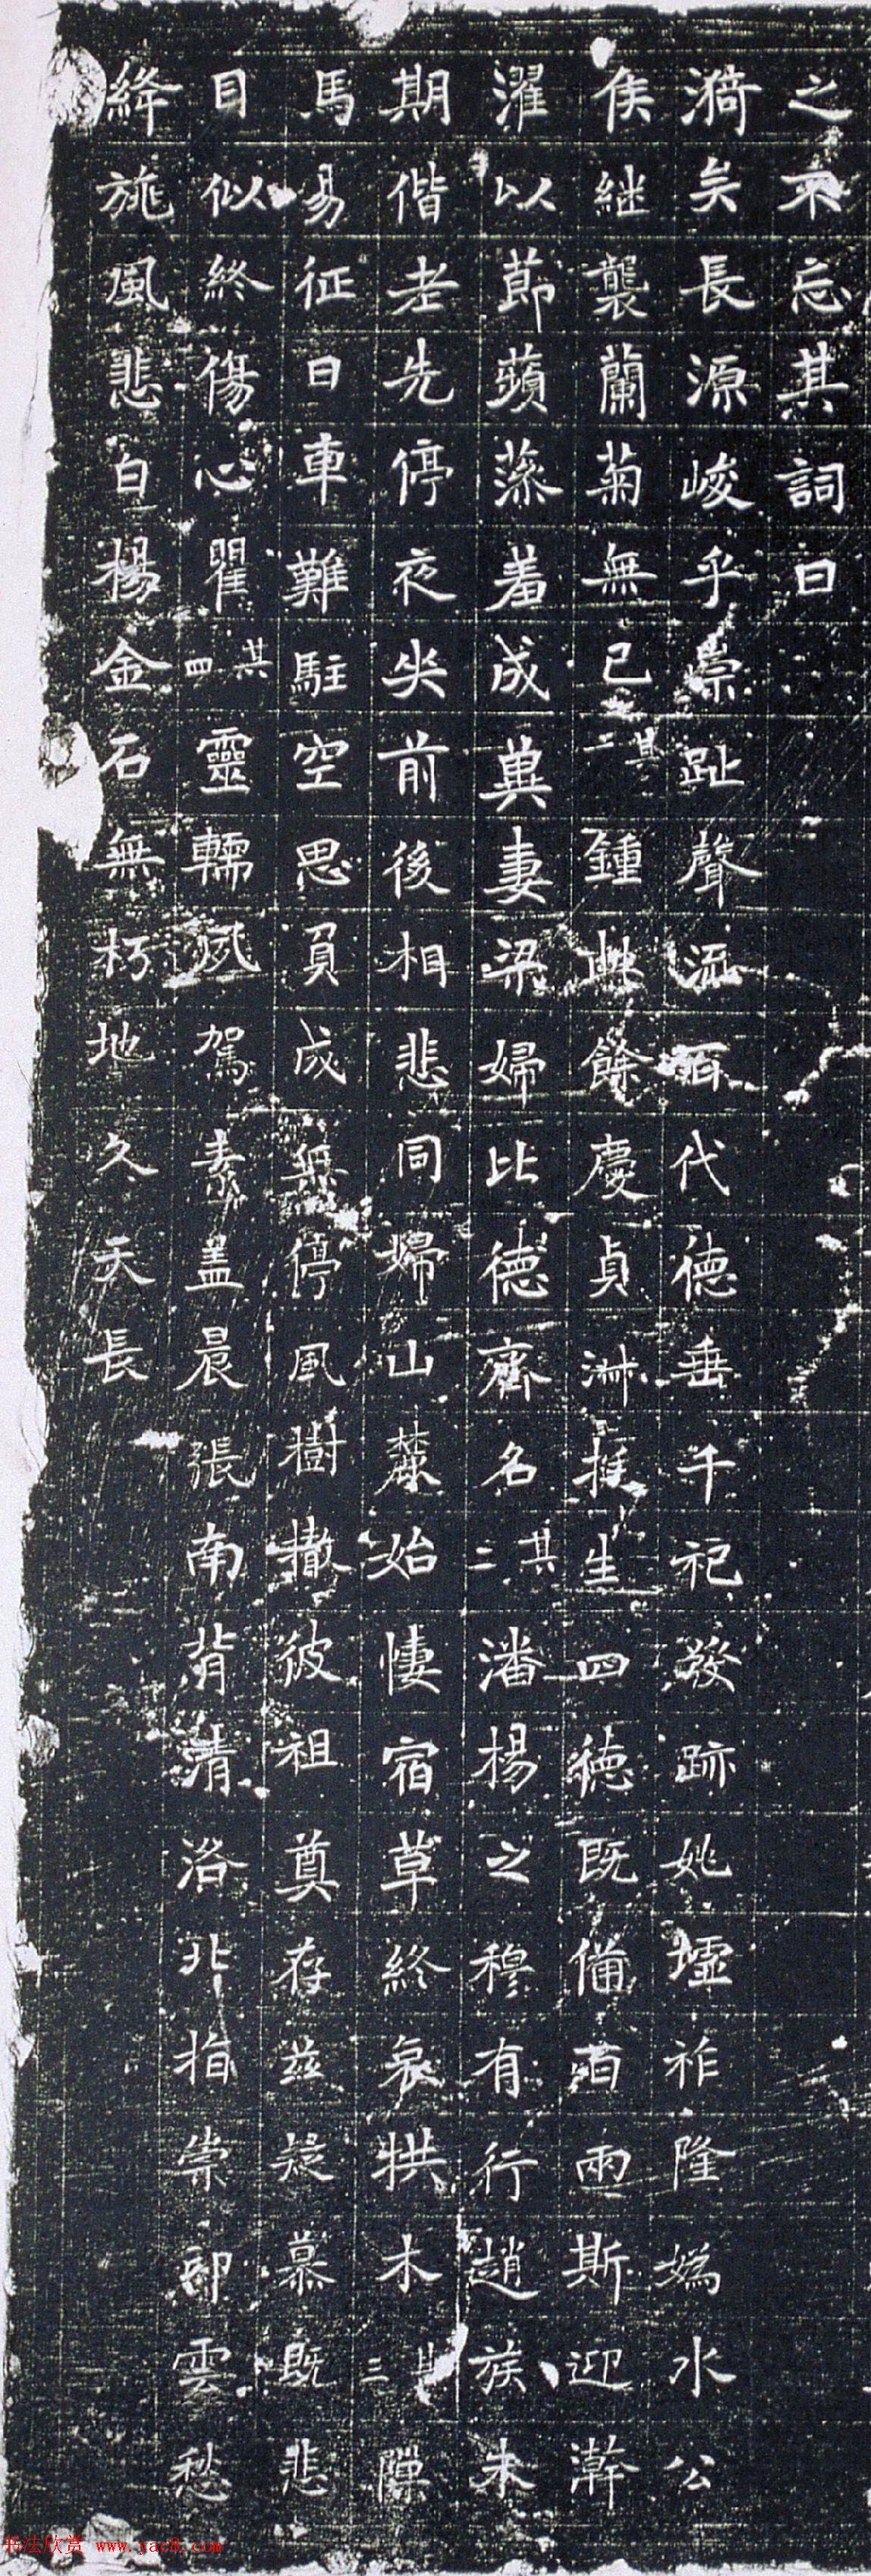 之不忘其詞曰
漪矣長源峻乎崇趾聲流百代德垂千祀發跡姚墟祚隆媯水公
侯継襲蘭菊無已其一鍾此餘慶貞淋挺生四德既備百兩斯迎瀚
濯以節蘋蘩羞成冀妻梁婦比德齊名其二潘楊之穆有行趙族未
期偕老先停夜哭前後相悲同歸山麓始悽宿草終哀拱木其三隙
馬易征日車難駐空思負成無停風樹撤彼祖奠存玆凝慕既悲
目似終傷心瞿其四靈轜夙駕素盖晨張南背清洛北指崇邙雲愁
絳旐風悲白楊金石無朽地久天長
书法欣赏 www.yac8.com